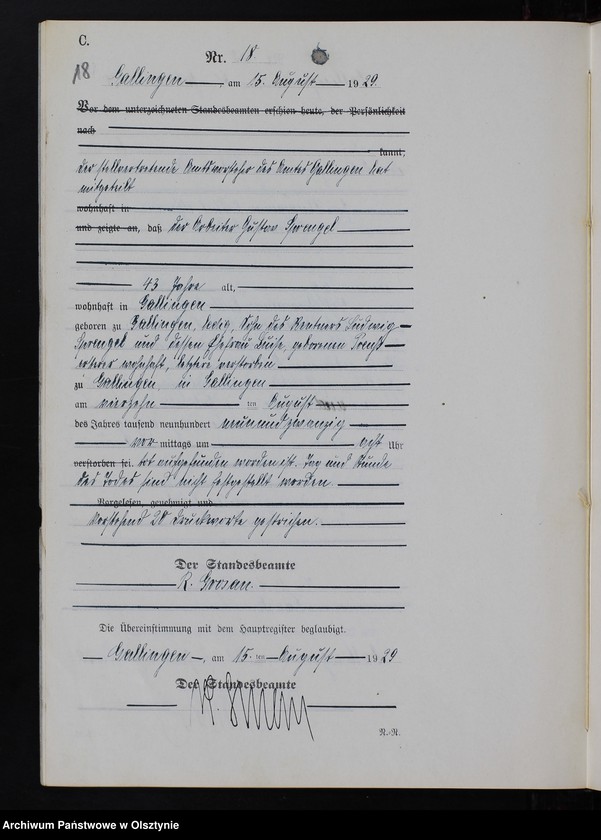 C.
Nr. 18.
18
Gallingen, am 15. August 1929.
Vor dem unterzeichneten Standesbeamten erschien heute, der Persönlichkeit
nach
kannt,
der stellvertretende Amtsvorsteher des Amtes Gallingen hat
mitgeteilt
wohnhaft in
und zeigte an, daß der Arbeiter Gustav
43 Jahre alt,
wohnhaft in Gallingen
geboren zu Gallingen, ledig, Sohn des Rentners Ludwig
und dessen Ehefrau Luise, geborenen
ersterer wohnhaft, letztere verstorben
zu Gallingen in Gallingen
am vierzehn ten August
des Jahres tausend neunhundert neunundzwanzig
vor mittags um acht Uhr
verstorben sei. tot aufgefunden worden ist. Tag und Stunde
des Todes sind nicht festgestellt worden
Vorgelesen, genehmigt und
Vorstehend 20 Druckworte gestrichen.
Der Standesbeamte
R.
Die Übereinstimmung mit dem Hauptregister beglaubigt.
Gallingen, am 15. ten August 1929
Der Standesbeamte
N.-R.
Archiwum Państwowe w Olsztynie